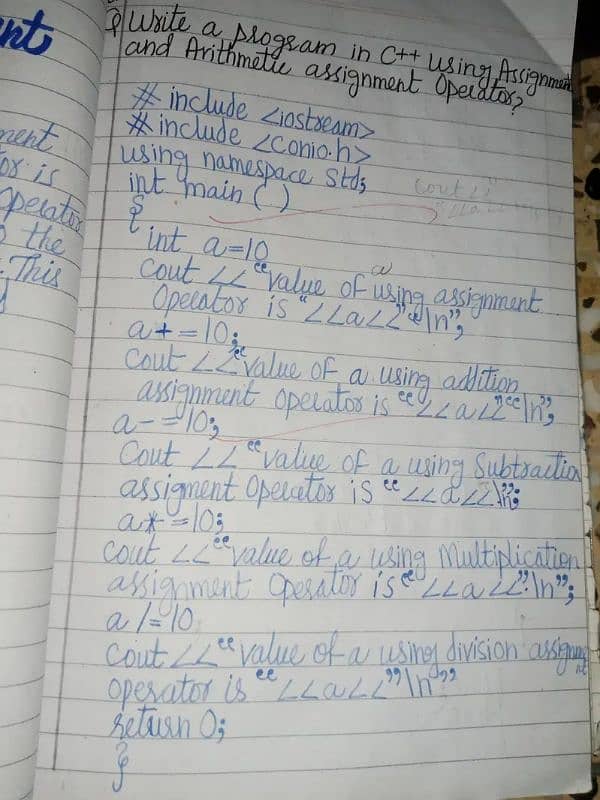 nt
ment
or is
Operator
the
This
Q Write a program in C++ using Assignment
and Arithmetic assignment Operator?
# include <iostream>
# include <conio.h>
using namespace std;
int main ( )
{
int a=10
a
Cout << "value of using assignment
Operator is "<<a<<"\n";
a+=10;
Cout << "value of a using addition
assignment operator is "<<a<<"\n";
a-=10;
Cout << "value of a using Subtraction
assigment Operator is "<<a<<"\n";
a*=10;
cout << "value of a using Multiplication
assignment Operator is "<<a<<"\n";
a/=10
Cout << "value of a using division assignment
operator is "<<a<<"\n"
return 0;
}